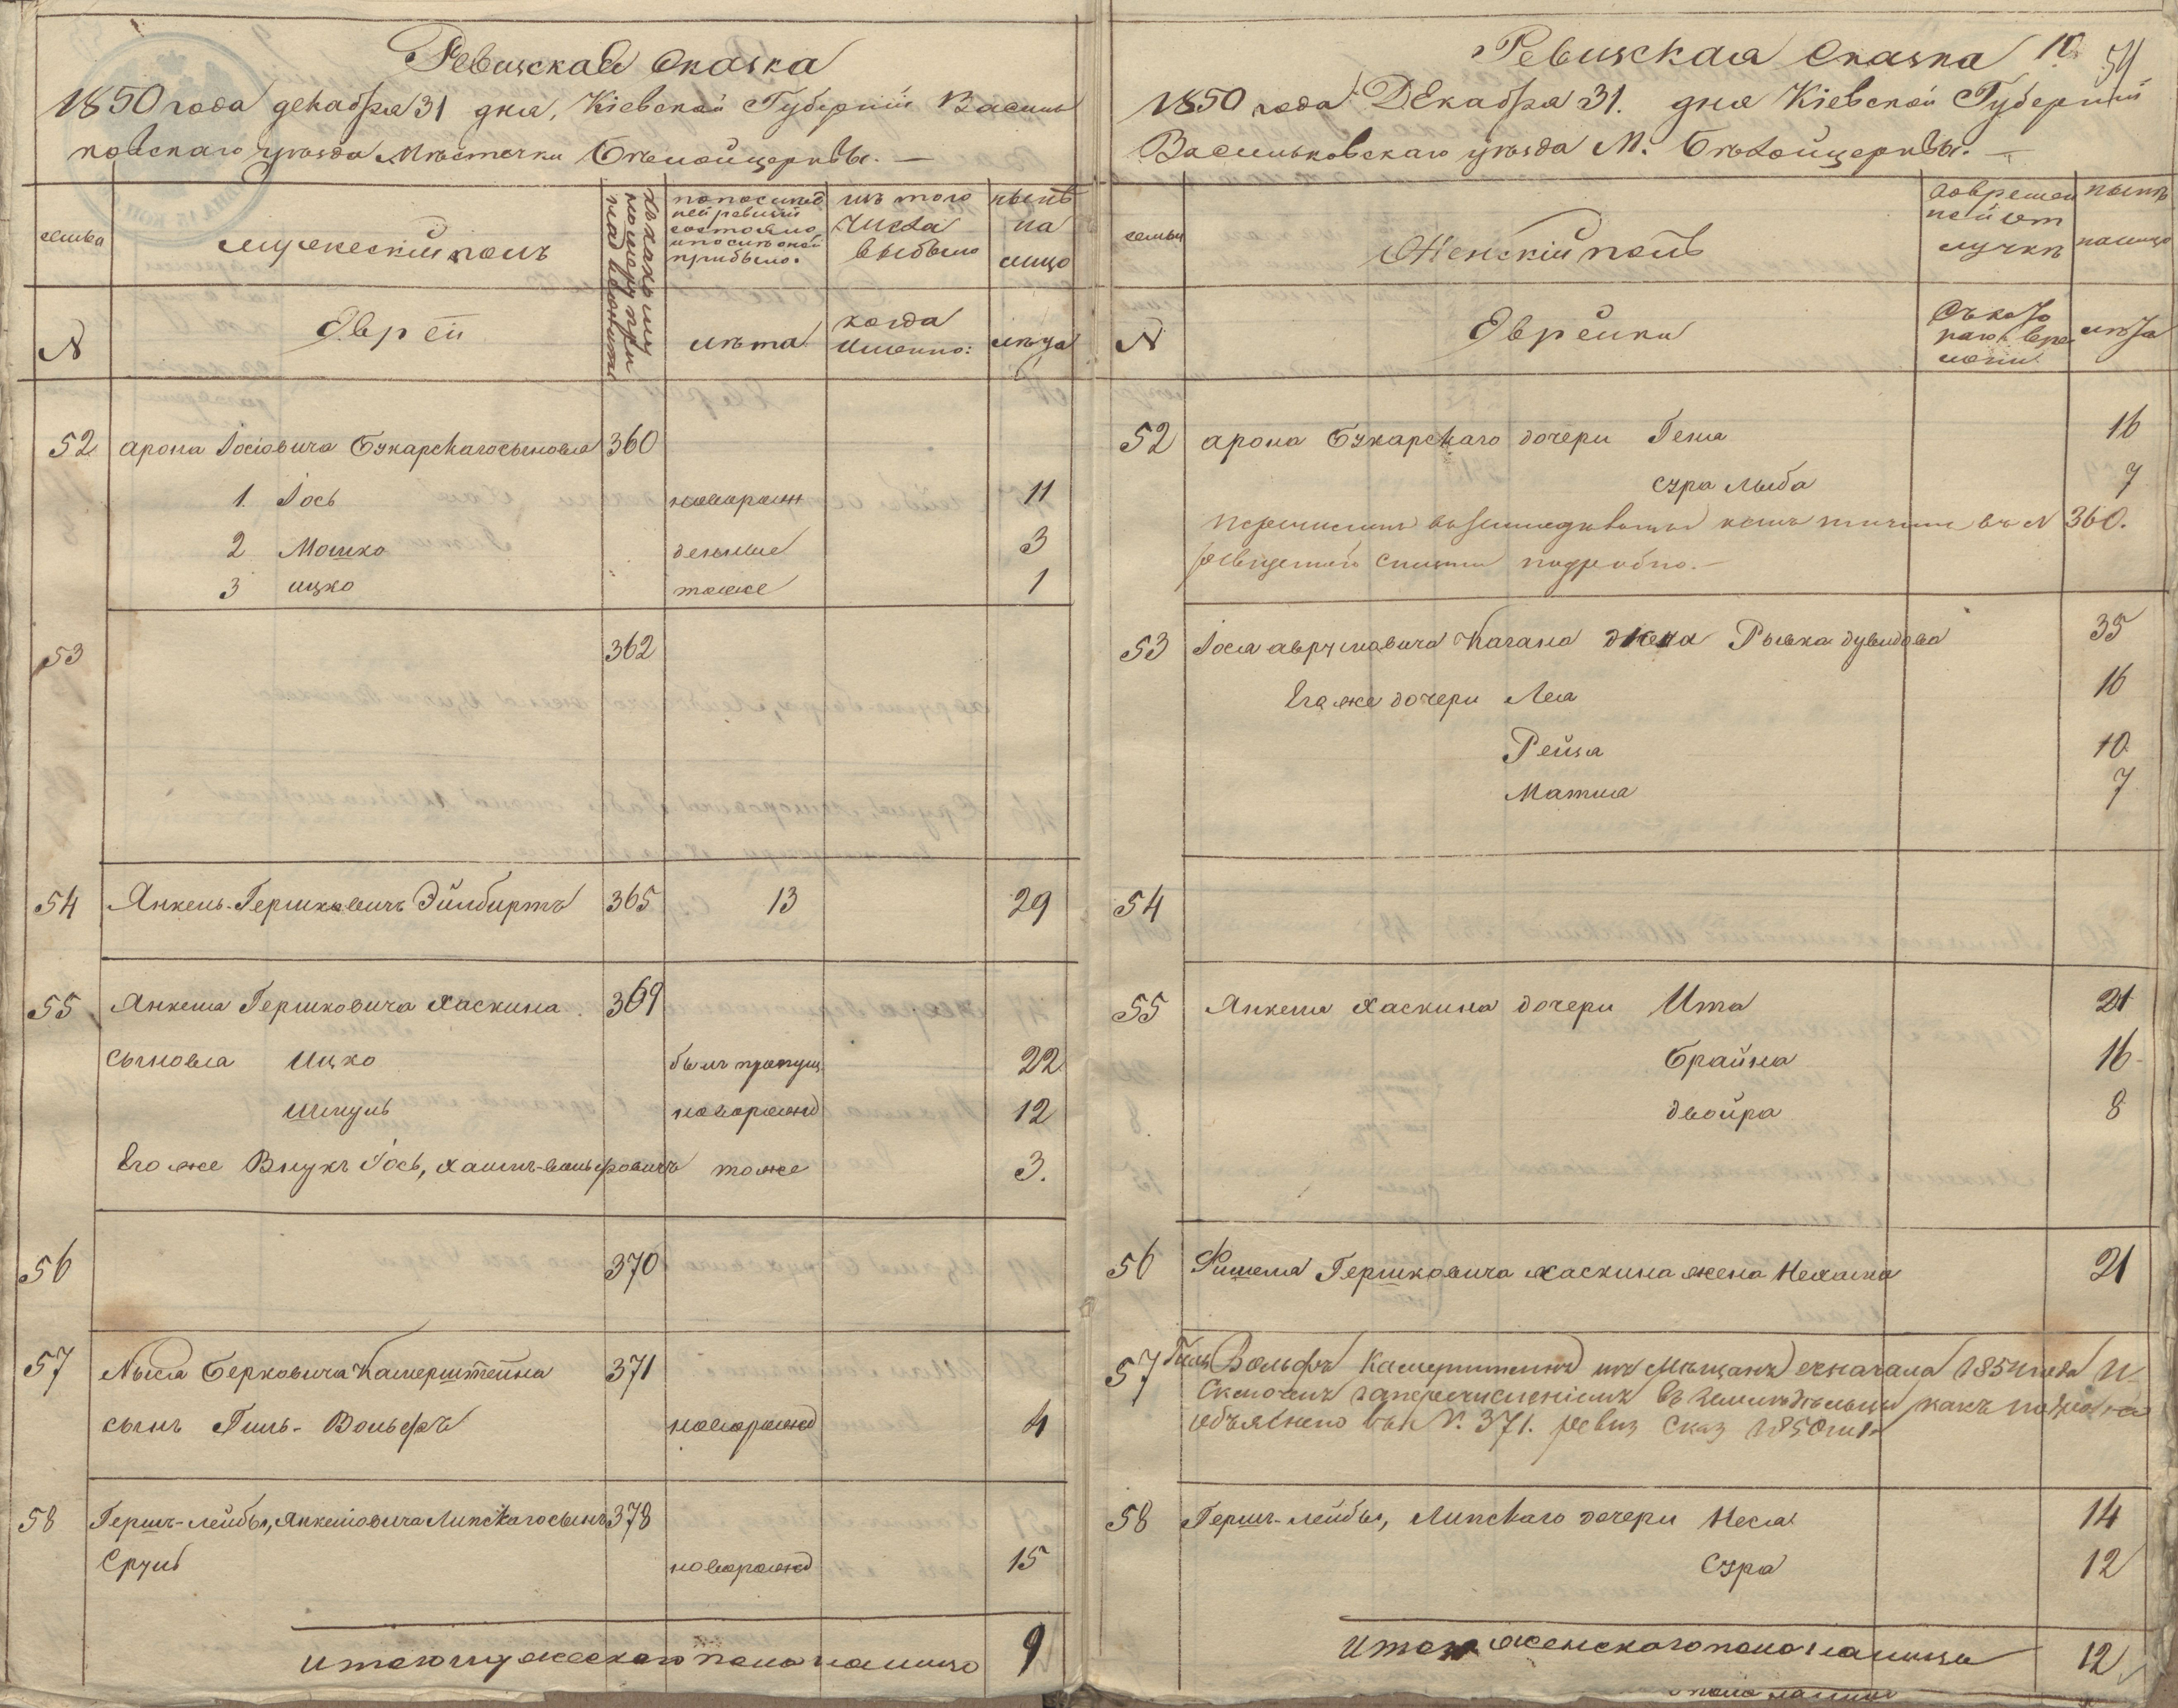 Ревизская Сказка
1850 года декабря 31 дня, Кіевской Губерніи Василь
ковскаго уезда Мѣстечки Бѣлойцерквы. —
семьи
мужескій полъ
подъ какимъ номеромъ при
по последней ревизіи состояло и после оной прибыло.
изъ того числа выбыло
нынѣ на лицо
N
Евреи
лѣта
когда именно:
лѣта
52 арона Іосіовича Букарскаго сыновья 360
1. Іось новорожн 11
2 Мошко 3
3 ицко тоже 1
53 362
54 Янкель-Гершковичъ Эйлбиртъ 365 13 29
55 Янкеля Гершковича Хаскина 369
сыновья Ицко былъ пропущ 22
Шмуль новорожд 12
Его же Внукъ Іось, Хаимъ-вольфовичъ тоже 3.
56 370
57 Мысла Берковича Камерштейна 371
сынъ Гиль-Вольфъ новорожд 4
58 Гершъ-лейбы, Янкеліовича Липскаго сынъ 378
Сруль новорожд 15
Итого мужескаго пола налицо 9
Ревизская Сказка 10. 54
1850 года Декабря 31. дня Кіевской Губерніи
Васильковскаго уѣзда М. Бѣлойцерквы. —
семьи
Женскій полъ
во временной отлучкѣ
нынѣ налицо
N
Еврейки
Съ котораго времени
лѣта
52 арона Букарскаго дочери Геня 16
сура лыба 7
въ N 360.
подробно. —
53 Іося аврумовича Кагана жена Рывка дувидова 35
Его же дочери Лея 16
Рейзя 10
Матля 7
54
55 Янкеля Хаскина дочери Ита 21
Брайна 16
двойра 8
56 Фишеля Гершковича Хаскина жена Нехама 21
57 Гиль Вольфъ Камерштейнъ изъ Мѣщанъ съ начала 1854 года И
сключенъ заперечисленіемъ въ земледѣльцы какъ подробно
объяснено въ N. 371. ревиз Сказ 1850 г.
58 Гершъ-лейбы, Липскаго дочери Неся 14
Сура 12
Итого женскаго пола налицо 12